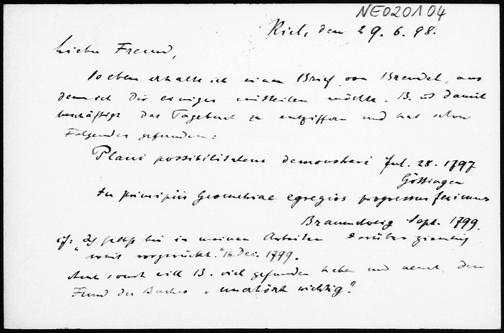 NE020104
Kiel, den 29.6.98.
Lieber Freund,
Soeben erhalte ich einen Brief von Brendel, aus
dem ich Dir einiges mitteilen möchte. B. ist damit
beschäftigt das Tagebuch zu entziffern und hat schon
Folgendes gefunden:
Plani possibilitatem demonstravi Jul. 28. 1797
Göttingen
In principiis Geometriae egregios progressus fecimus
Braunschweig Sept. 1799.
cf: Ich selbst bin in meinen Arbeiten darüber ziemlich
weit vorgerückt." 16 Dec. 1799.
Auch sonst will B. viel gefunden haben und nennt den
Fund des Buches "unerhört wichtig".